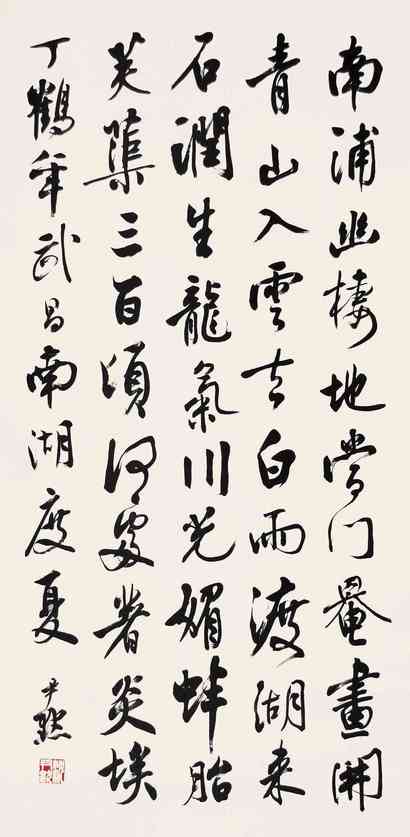 南浦幽棲地當門罨畫開
青山入雲去白雨渡湖來
石潤生龍氣川光媚蚌胎
芙蕖三百頃何處著炎埃
丁鶴年武昌南湖度夏
尹默